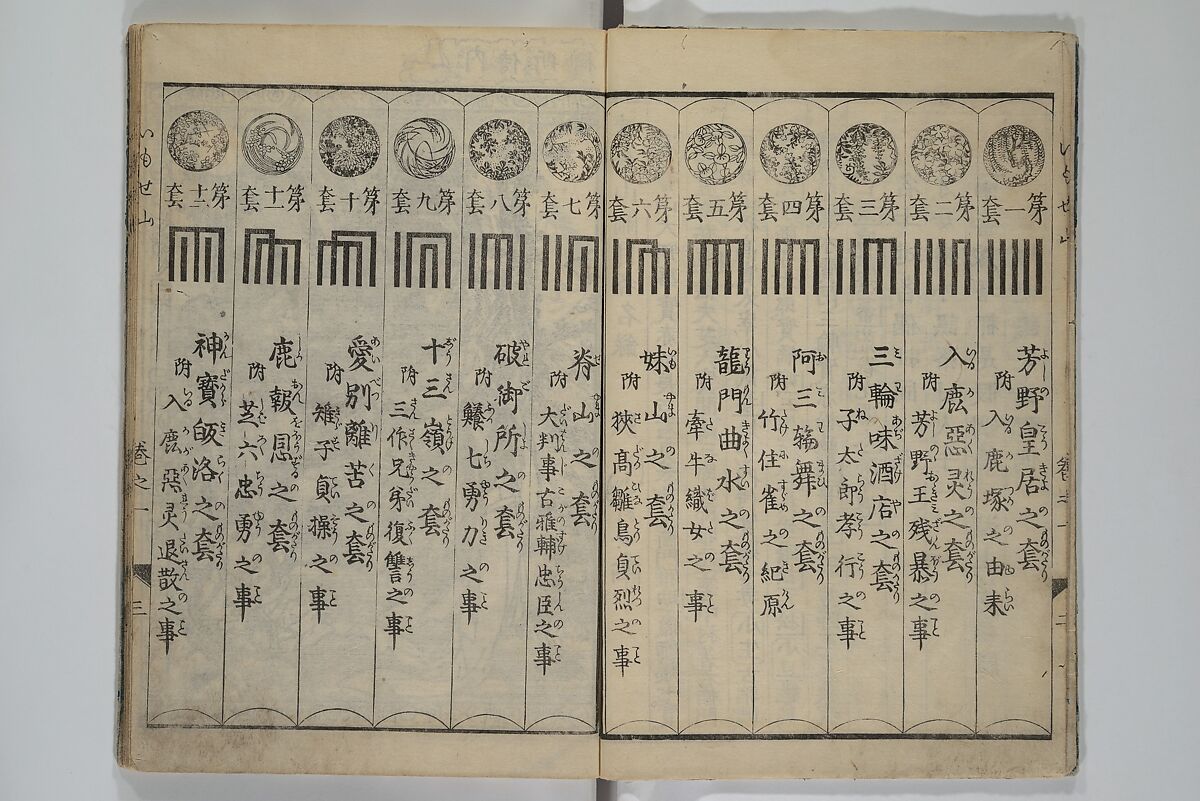 第一套
芳野皇居之套
附 入鹿塚之由来
第二套
入鹿惡灵之套
附 芳野王残暴之事
第三套
三輪味酒店之套
附 子太郎孝行之事
第四套
阿三輪舞之套
附 竹住雀之紀原
第五套
龍門曲水之套
附 牽牛織女之事
第六套
妹山之套
附 狹髙雛鳥貞烈之事
第七套
脊山之套
附 大判事古雅輔忠臣之事
第八套
破御所之套
附 鱶七勇力之事
第九套
十三嶺之套
附 三作兄弟復讐之事
第十套
愛別離苦之套
附 雉子貞操之事
第十一套
鹿報恩之套
附 芝六忠勇之事
第十二套
神寶皈洛之套
附 入鹿惡灵退散之事
いもせ山
巻之一
三